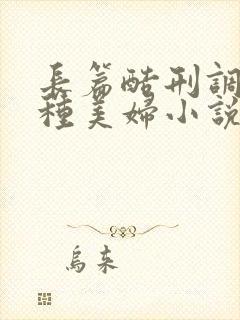 長篇酷刑調
種美婦小說
烏来